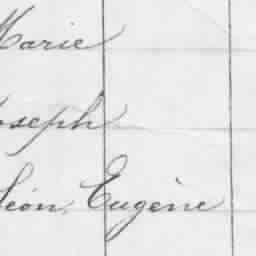 Marie
Joseph
Léon, Eugène